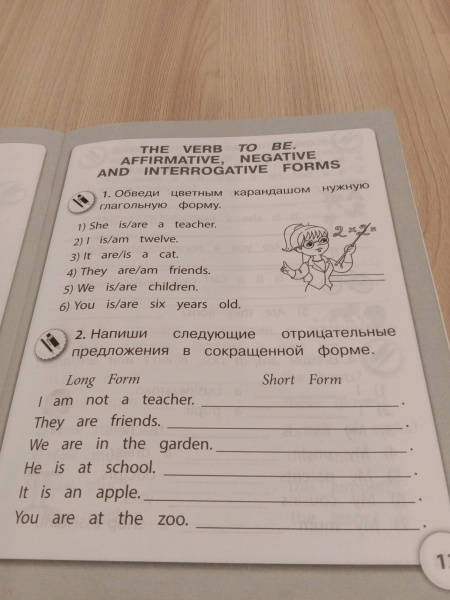 THE VERB TO BE.
AFFIRMATIVE, NEGATIVE
AND INTERROGATIVE FORMS
1. Обведи цветным карандашом нужную
глагольную форму.
1) She is/are a teacher.
2) I is/am twelve.
3) It are/is a cat.
4) They are/am friends.
5) We is/are children.
6) You is/are six years old.
2×2=
2. Напиши следующие отрицательные
предложения в сокращенной форме.
Long Form Short Form
I am not a teacher. .
They are friends. .
We are in the garden. .
He is at school. .
It is an apple. .
You are at the zoo. .